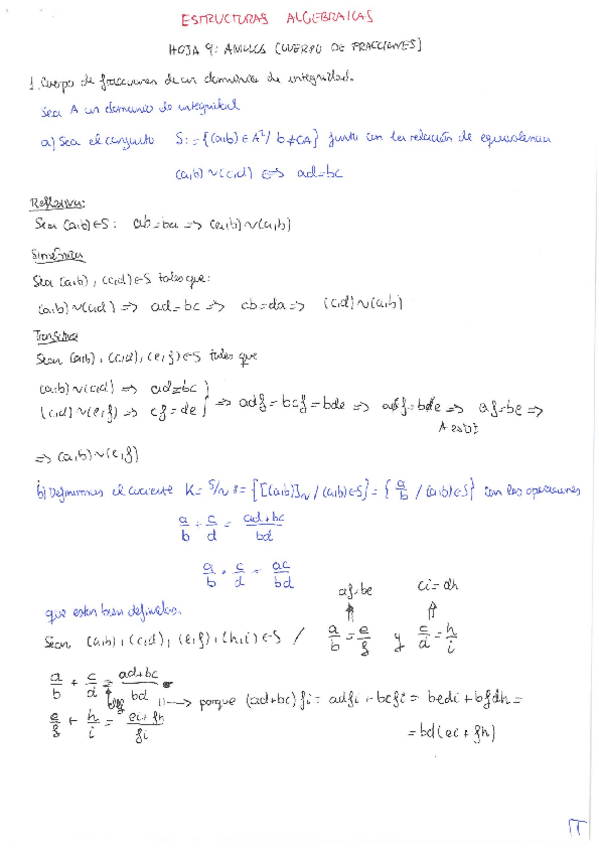 ESTRUCTURAS ALGEBRAICAS
HOJA 9: ANILLOS (CUERPO DE FRACCIONES)
1. Cuerpo de fracciones de un dominio de integridad.
Sea A un dominio de integridad
a) Sea el conjunto S := {(a,b) ∈ A² / b ≠ 0A} junto con la relación de equivalencia
(a,b) ~ (c,d) ⟺ ad = bc
Reflexiva:
Sea (a,b) ∈ S : ab = ba ⟹ (a,b) ~ (a,b)
Simétrica
Sea (a,b), (c,d) ∈ S tales que:
(a,b) ~ (c,d) ⟹ ad = bc ⟹ cb = da ⟹ (c,d) ~ (a,b)
Transitiva
Sean (a,b), (c,d), (e,f) ∈ S tales que
(a,b) ~ (c,d) ⟹ ad = bc }
(c,d) ~ (e,f) ⟹ cf = de } ⟹ adf = bcf = bde ⟹ adf = bde ⟹ af = be ⟹
A es DI
⟹ (a,b) ~ (e,f)
b) Definimos el cociente K = S/~ = {[(a,b)]~ / (a,b) ∈ S} = {a/b / (a,b) ∈ S} con las operaciones
a/b + c/d = ad+bc/bd
a/b · c/d = ac/bd
af = be ci = dh
que están bien definidas.
Sean (a,b), (c,d), (e,f), (h,i) ∈ S / a/b = e/f y c/d = h/i
a/b + c/d = ad+bc/bd
e/f + h/i = ei+fh/fi
porque (ad+bc)fi = adfi + bcfi = bedi + bfdh =
= bd(ei + fh)